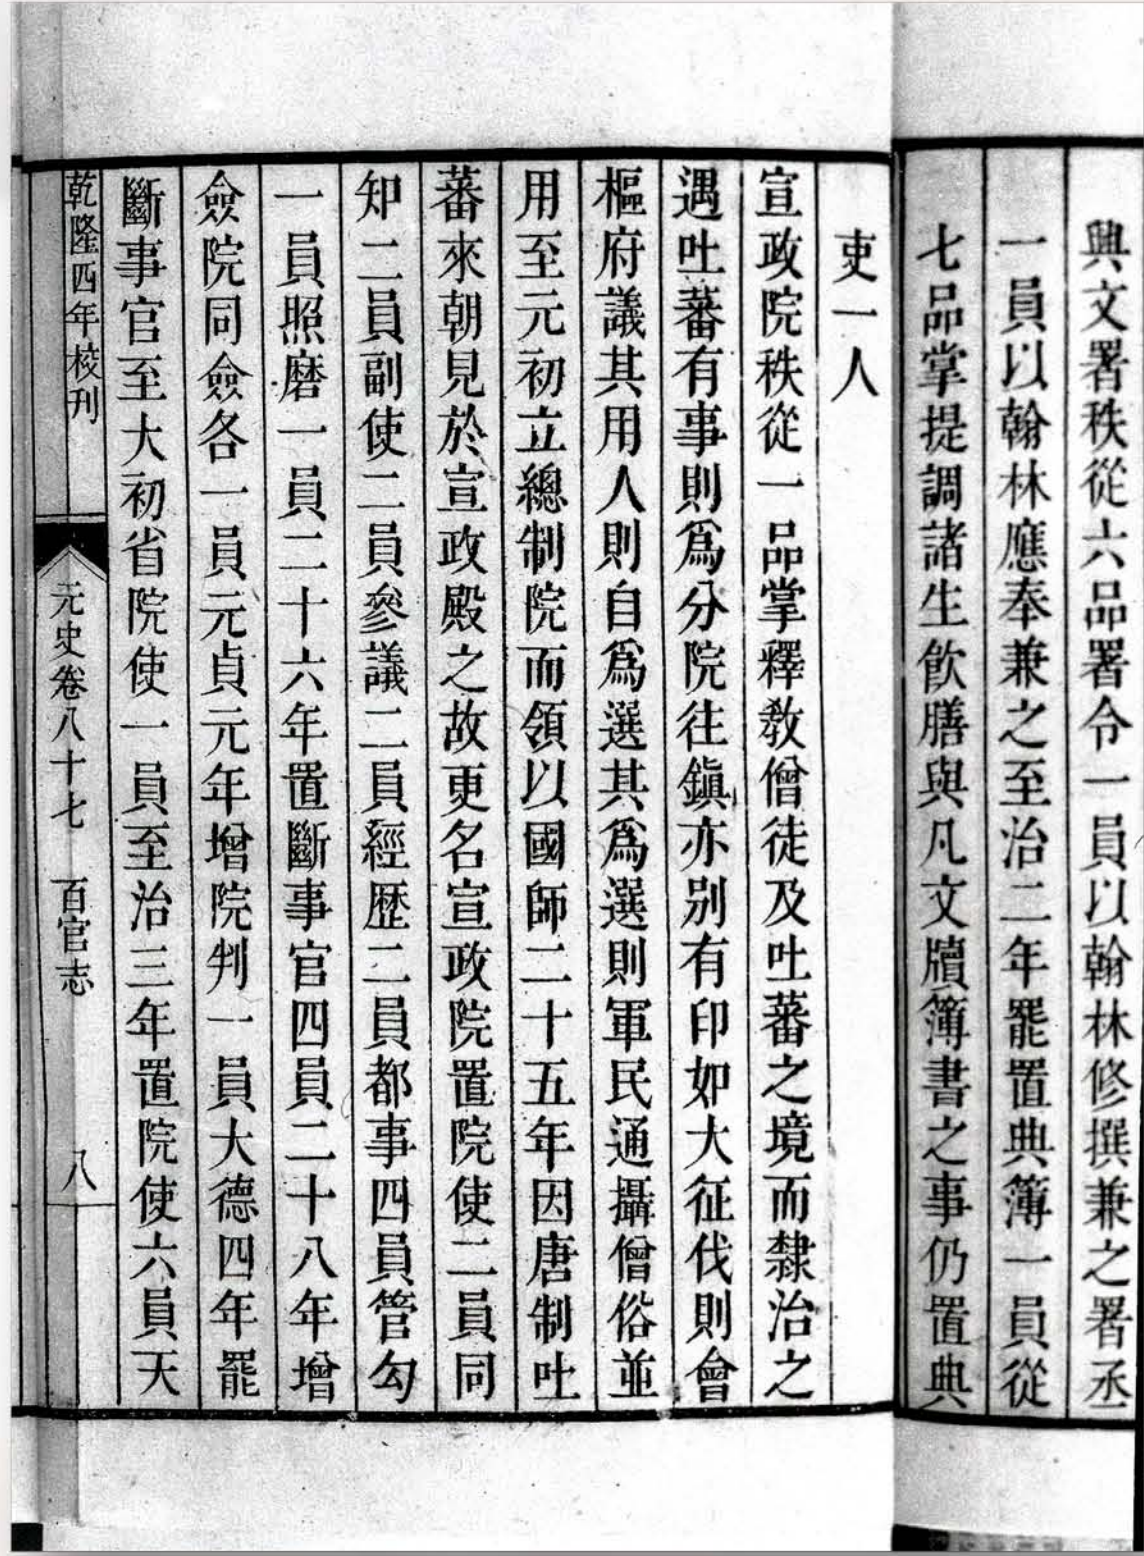 興文署秩從六品署令一員以翰林修撰兼之署丞
一員以翰林應奉兼之至治二年罷置典簿一員從
七品掌提調諸生飮膳與凡文牘簿書之事仍置典
吏一人
宣政院秩從一品掌釋敎僧徒及吐蕃之境而隸治之
遇吐蕃有事則爲分院往鎭亦别有印如大征伐則會
樞府議其用人則自爲選其爲選則軍民通攝僧俗並
用至元初立總制院而領以國師二十五年因唐制吐
蕃來朝見於宣政殿之故更名宣政院置院使二員同
知二員副使二員參議二員經歴二員都事四員管勾
一員照磨一員二十六年置斷事官四員二十八年增
僉院同僉各一員元貞元年增院判一員大德四年罷
斷事官至大初省院使一員至治三年置院使六員天
乾隆四年校刊
元史卷八十七 百官志 八